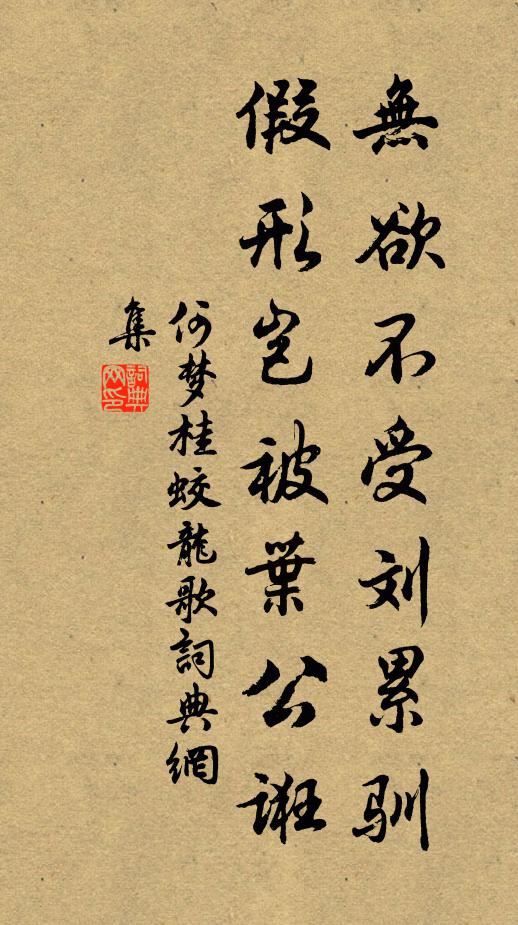 無欲不受刘累驯
假形岂被葉公誑
何梦桂蛟龍歌詞典網
集
詞典網印